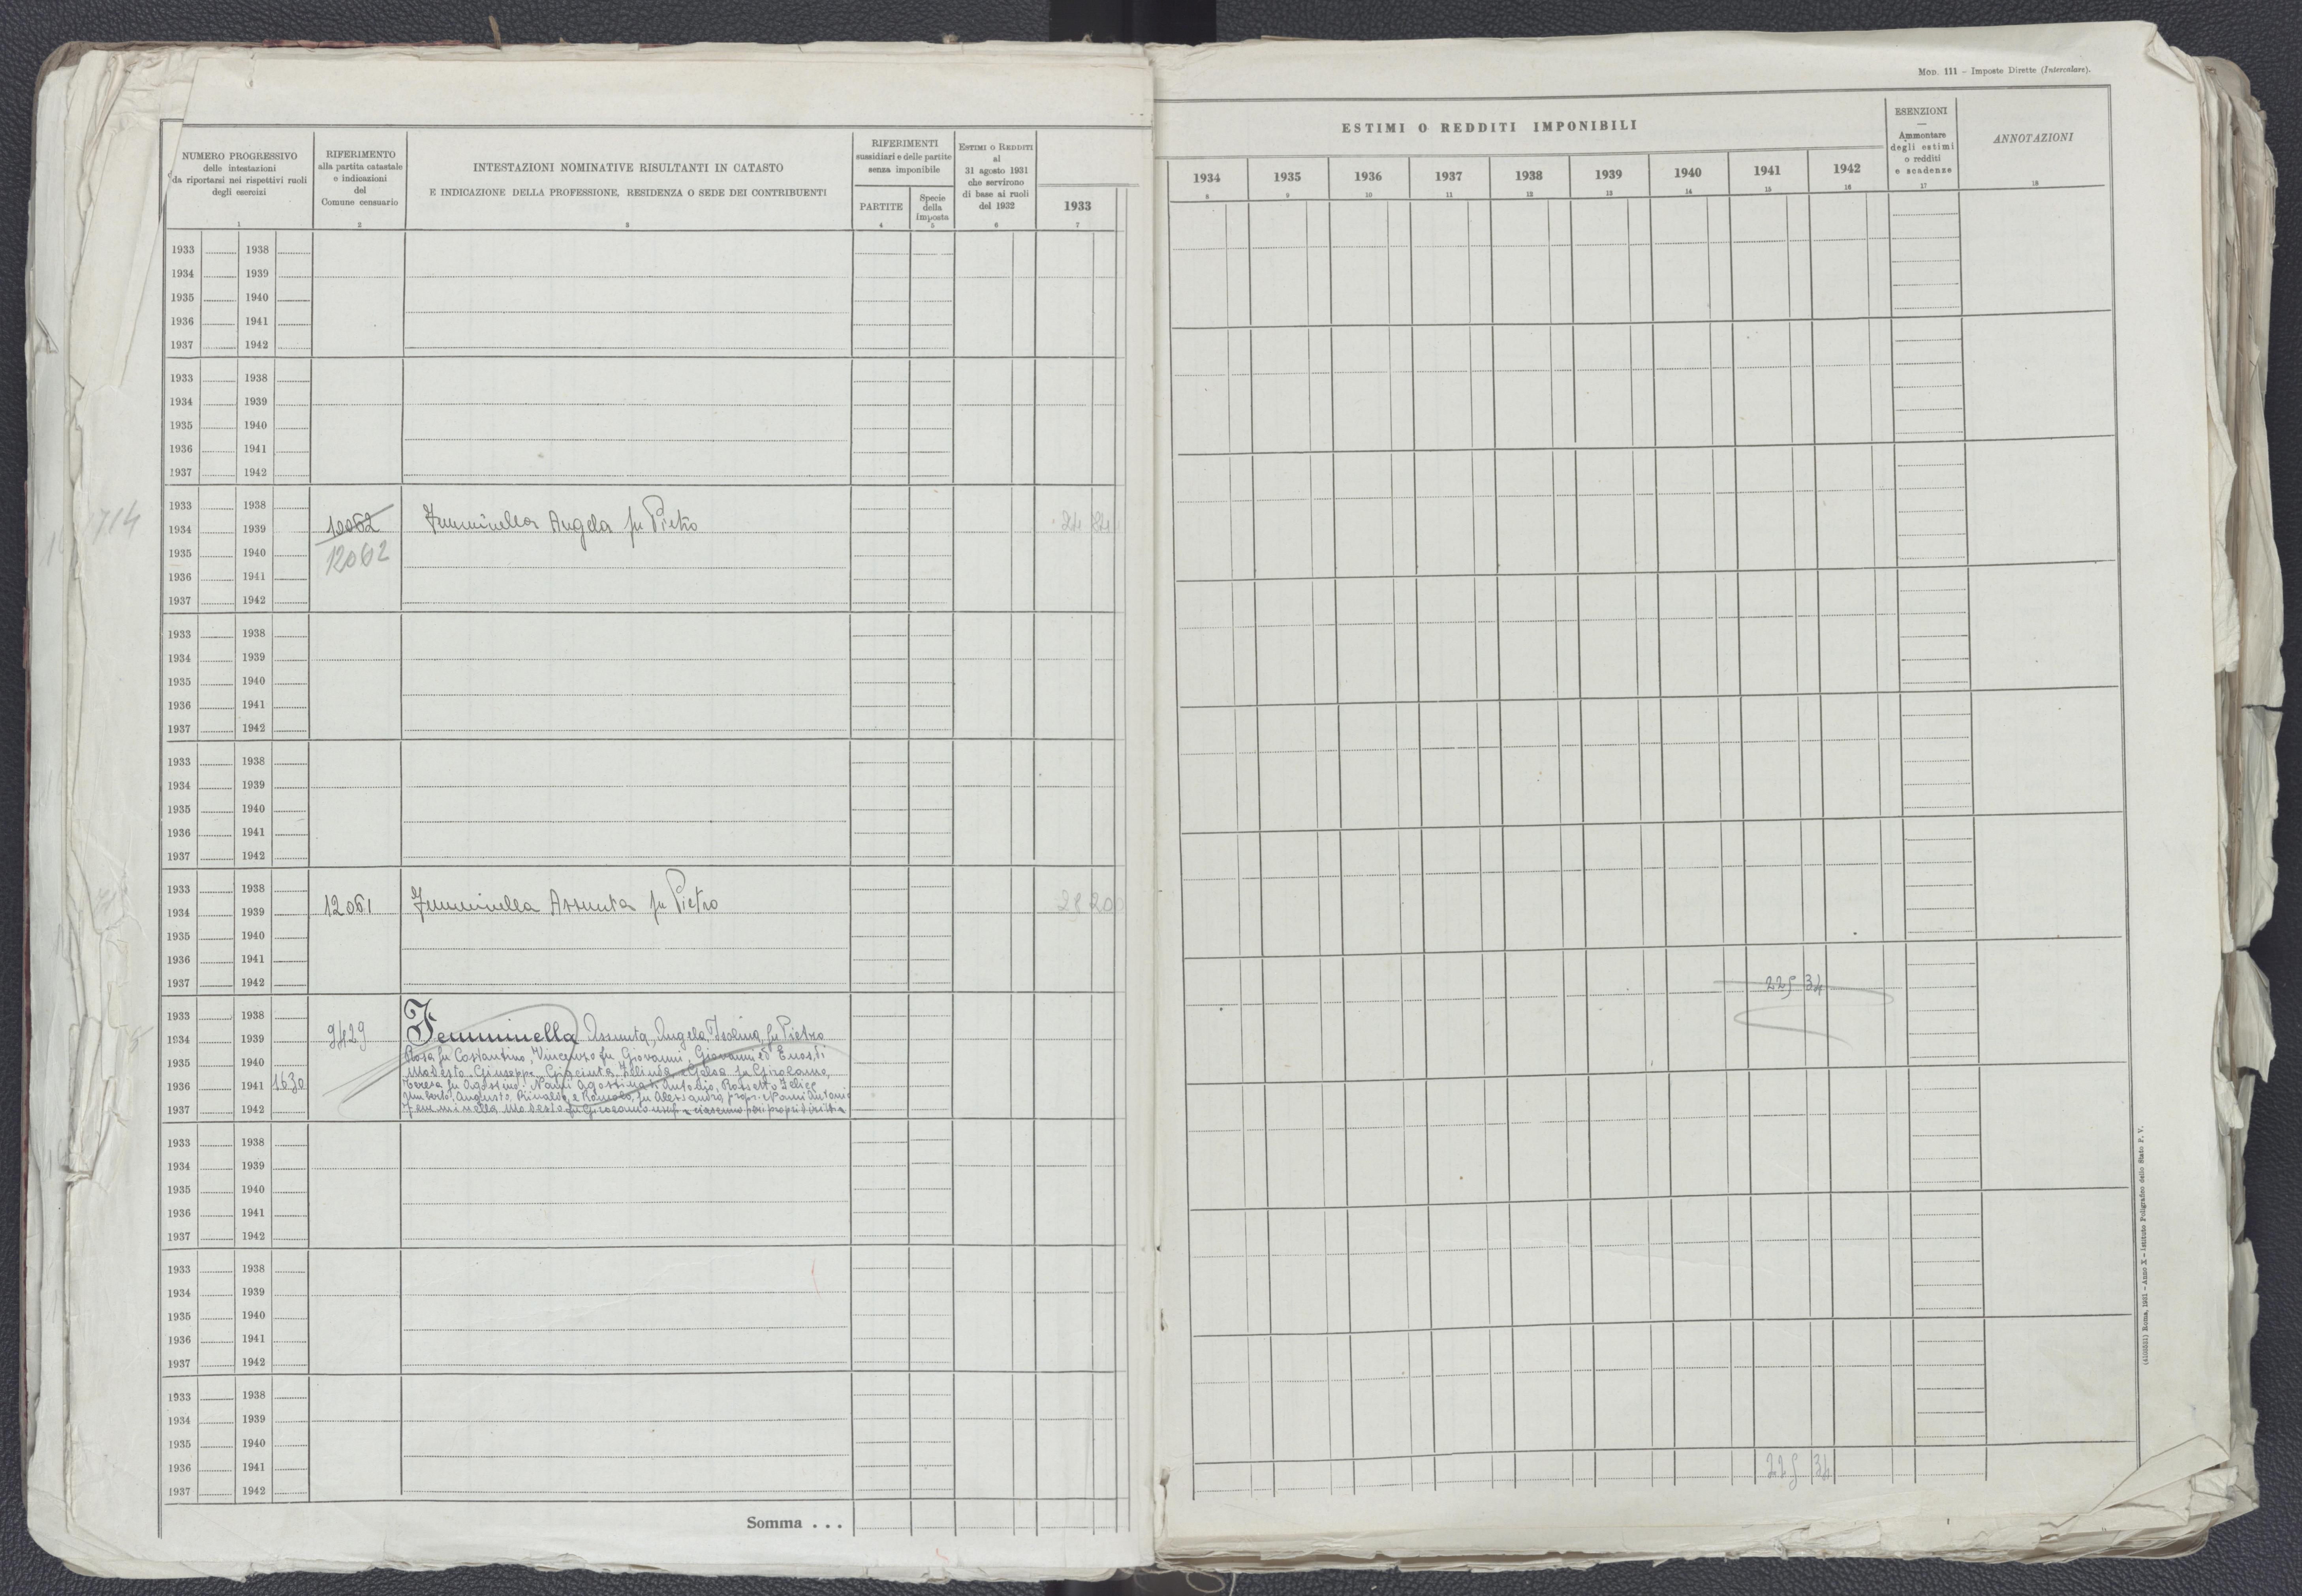 MOD. 111 – Imposte Dirette (Intercalare).
NUMERO PROGRESSIVO
delle intestazioni
da riportarsi nei rispettivi ruoli
degli esercizi
1
RIFERIMENTO
alla partita catastale
e indicazioni
del
Comune censuario
2
INTESTAZIONI NOMINATIVE RISULTANTI IN CATASTO
E INDICAZIONE DELLA PROFESSIONE, RESIDENZA O SEDE DEI CONTRIBUENTI
3
RIFERIMENTI
sussidiari e delle partite
senza imponibile
PARTITE
4
Specie
della
imposta
5
ESTIMI O REDDITI
al
31 agosto 1931
che servirono
di base ai ruoli
del 1932
6
1933
7
ESTIMI O REDDITI IMPONIBILI
1934 1935 1936 1937 1938 1939 1940 1941 1942
8 9 10 11 12 13 14 15 16
ESENZIONI
—
Ammontare
degli estimi
o redditi
e scadenze
17
ANNOTAZIONI
18
1933 1938
1934 1939
1935 1940
1936 1941
1937 1942
1933 1938
1934 1939
1935 1940
1936 1941
1937 1942
714
1933 1938
1934 1939 10062 Femminella Angela fu Pietro 24 84
1935 1940 12062
1936 1941
1937 1942
1933 1938
1934 1939
1935 1940
1936 1941
1937 1942
1933 1938
1934 1939
1935 1940
1936 1941
1937 1942
1933 1938
1934 1939 12061 Femminella Assunta fu Pietro 28 20
1935 1940
1936 1941
1937 1942
225 34
1933 1938
1934 1939 9429 Femminella Assunta, Angela, Isolina, fu Pietro
1935 1940 Rosa fu Costantino, Vincenzo fu Giovanni, Giovanni ed Enos, di
Modesto, Giuseppe, Giacinta, Zelinda, Gelsa fu Girolamo,
1936 1941 1630 Teresa fu Agostino, Nanni Agostina di Antonio, Rossetto Felice
Umberto, Augusto, Rinaldo, e Romolo, fu Alessandro, propr. e Nanni Antonio
1937 1942 Femminella Modesto fu Girolamo usuf. ciascuno pei propri diritti
1933 1938
1934 1939
1935 1940
1936 1941
1937 1942
1933 1938
1934 1939
1935 1940
1936 1941
1937 1942
1933 1938
1934 1939
1935 1940
1936 1941
1937 1942
225 34
Somma . . .
(4105531) Roma, 1931 – Anno X – Istituto Poligrafico dello Stato P. V.